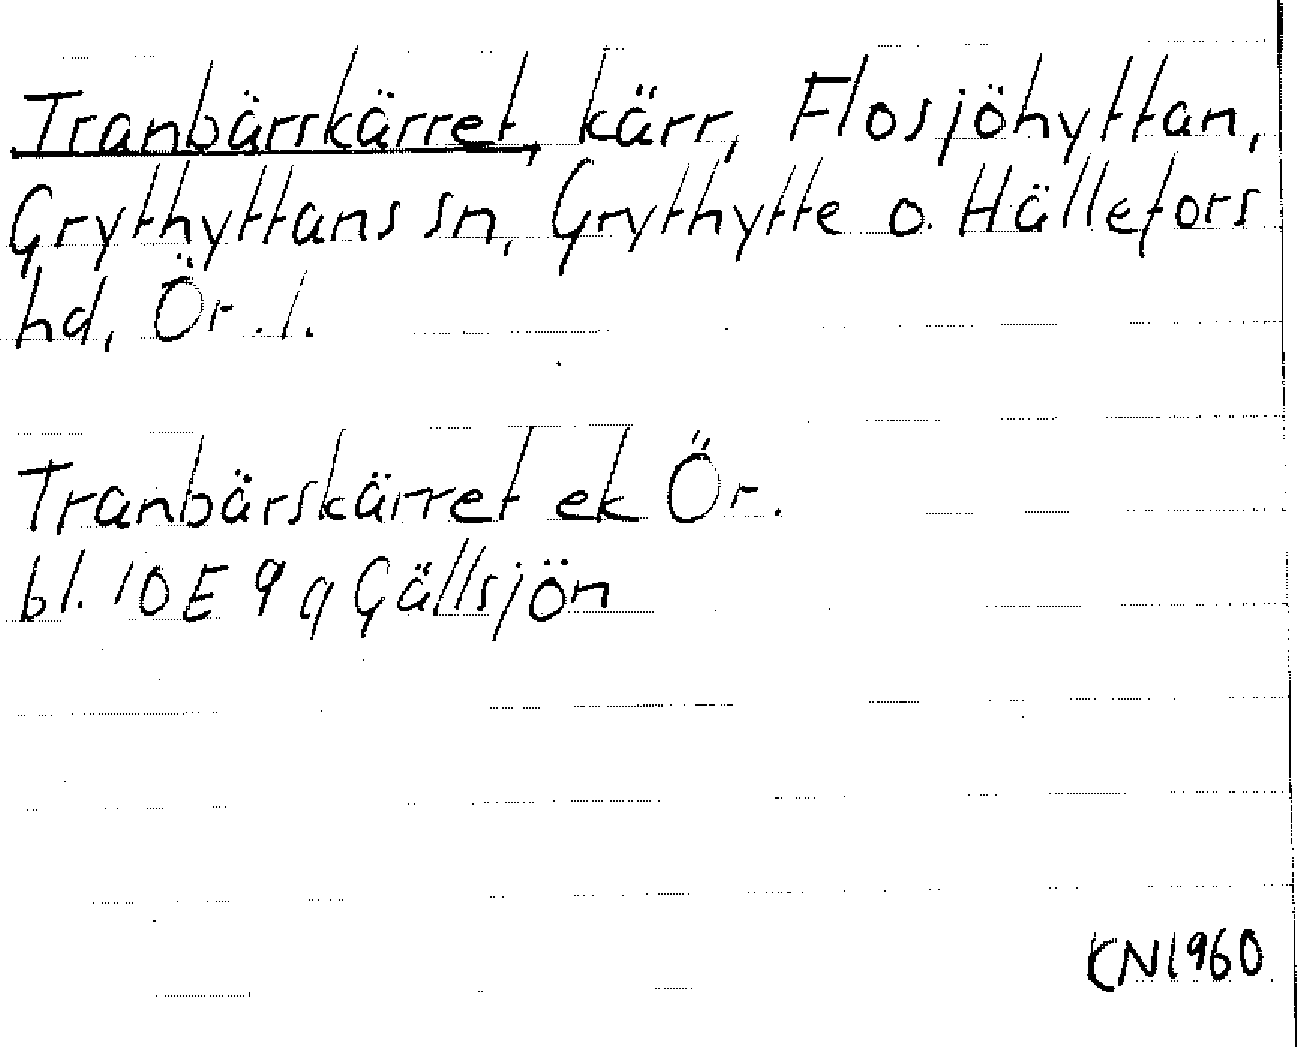 Tranbärskärret, kärr, Flosjöhyttan,
Grythyttans sn, Grythytte o. Hällefors
hd, Ör. l.
Tranbärskärret ek Ör.
bl. 10E 9 q Gällsjön
KN1960